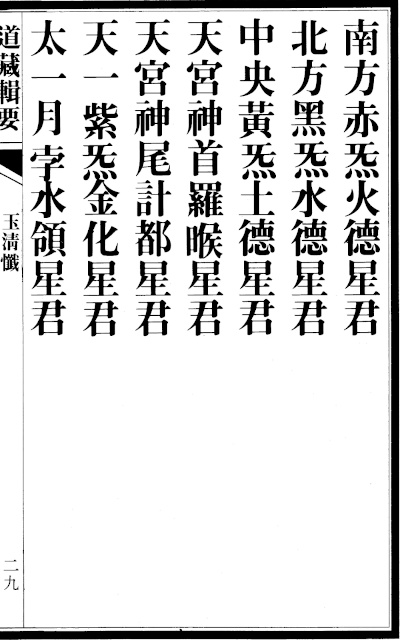 南方赤炁火德星君
北方黑炁水德星君
中央黃炁土德星君
天宮神首羅睺星君
天宮神尾計都星君
天一紫炁金化星君
太一月孛水領星君
道藏輯要
玉清懺
二九